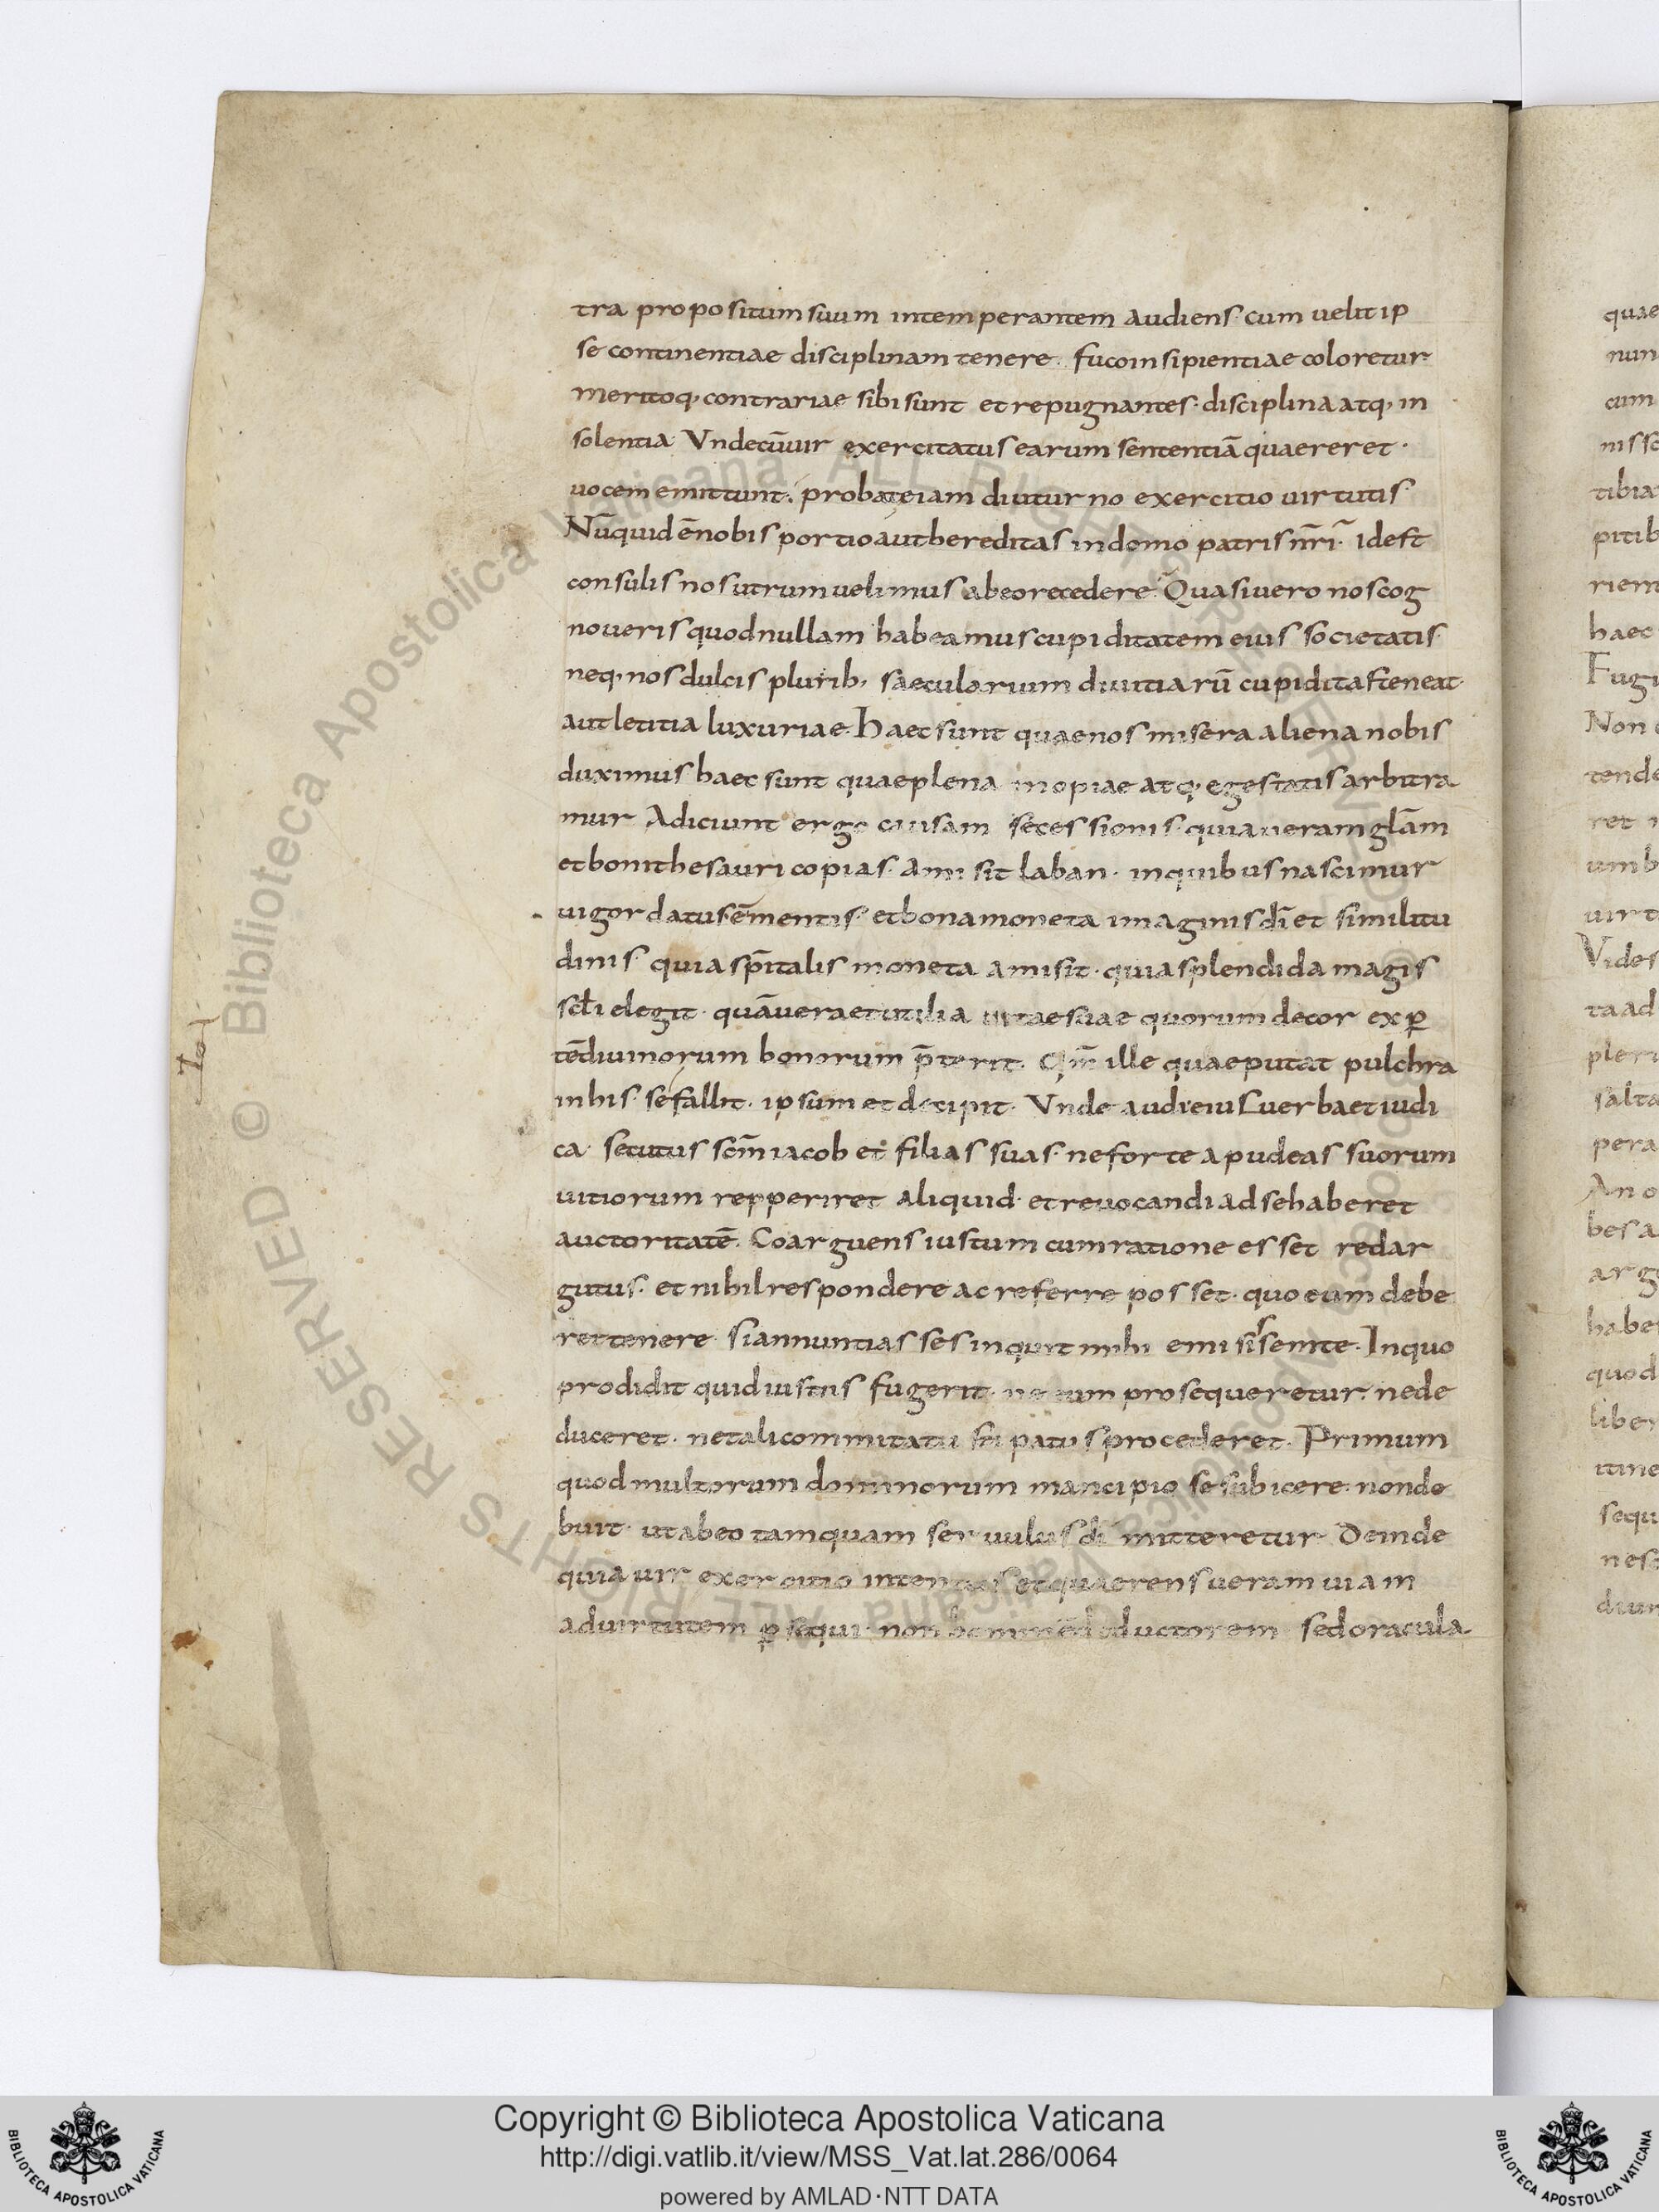 tra propositum suum intemperantem audiens· cum uelit ip
se continentiae disciplinam tenere· fuco insipientiae coloretur·
meritoq; contrariae sibi sunt et repugnantes· disciplina atq; in
solentia Vnde cū uir exercitatus earum sententiā quaereret·
uocem emittunt· probatę iam diuturno exercitio uirtutis·
Nūquid ē nobis portio aut hereditas in domo patris nr̄i· idest
consulis nos utrum uelimus ab eo recedere· Quasi uero nos cog
noueris quod nullam habeamus cupiditatem eius societatis·
neq; nos dulcis plurib; saecularium diuitiarū cupiditas teneat·
aut letitia luxuriae· haec sunt quae nos misera aliena nobis
duximus haec sunt quae plena inopiae atq; egestatis arbitra
mur Adiciunt ergo causam secessionis· quia ueram glām
et boni thesauri copias· amisit laban· in quibus nascimur
uigor datus ē mentis· et bona moneta imaginis dī et similitu
dinis quia sp̄italis moneta amisit· quia splendida magis
sc̄li elegit· quā uera et utilia uitae suae quorum decor exp̱
tē diuinorum bonorum p̄terit· Qm̄ ille quae putat pulchra
in his se fallit· ipsum et decipit· Vnde audi eius uerba et iudi
ca· secutus sc̄m iacob et filias suas· ne forte apud eas suorum
uitiorum repperiret aliquid· et reuocandi ad se haberet
auctoritatē· Coarguens iustum cum ratione esset redar
gutus· et nihil respondere ac referre posset· quo eum debe
ret tenere· si annuntiasses inquit mihi emisissem te· In quo
prodidit quid iustus fugerit· ne eum prosequeretur· ne de
duceret· ne tali commitatu stipatus procederet· Primum
quod multorum dominorum mancipio se subicere non de
buit· ut ab eo tamquam seruulus dimitteretur· Deinde
quia uir exercitio intentus et quaerens ueram uiam
ad uirtutem p̱sequi· non hominē deductorem sed oracula
quae
nun
cum
tibia
pitib
riem
haec
Fugi
Non
tende
ret
umb
uirt
Vides
ta ad
pler
salta
pera
An
bes a
arg
habe
quod
liber
itine
sequ
nes
diui
© Biblioteca Apostolica Vaticana ALL RIGHTS RESERVED
Copyright © Biblioteca Apostolica Vaticana
http://digi.vatlib.it/view/MSS_Vat.lat.286/0064
powered by AMLAD·NTT DATA
BIBLIOTECA APOSTOLICA VATICANA
BIBLIOTECA APOSTOLICA VATICANA